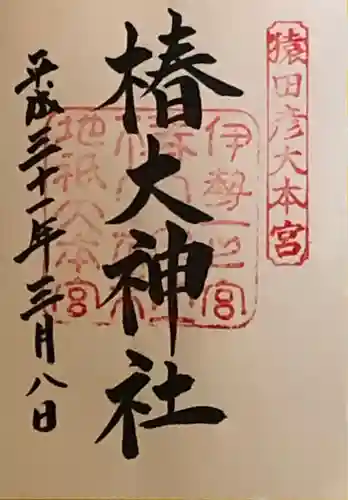 猿田彦大本宮
椿大神社
伊勢一之宮
地祇大本宮
平成三十一年三月八日